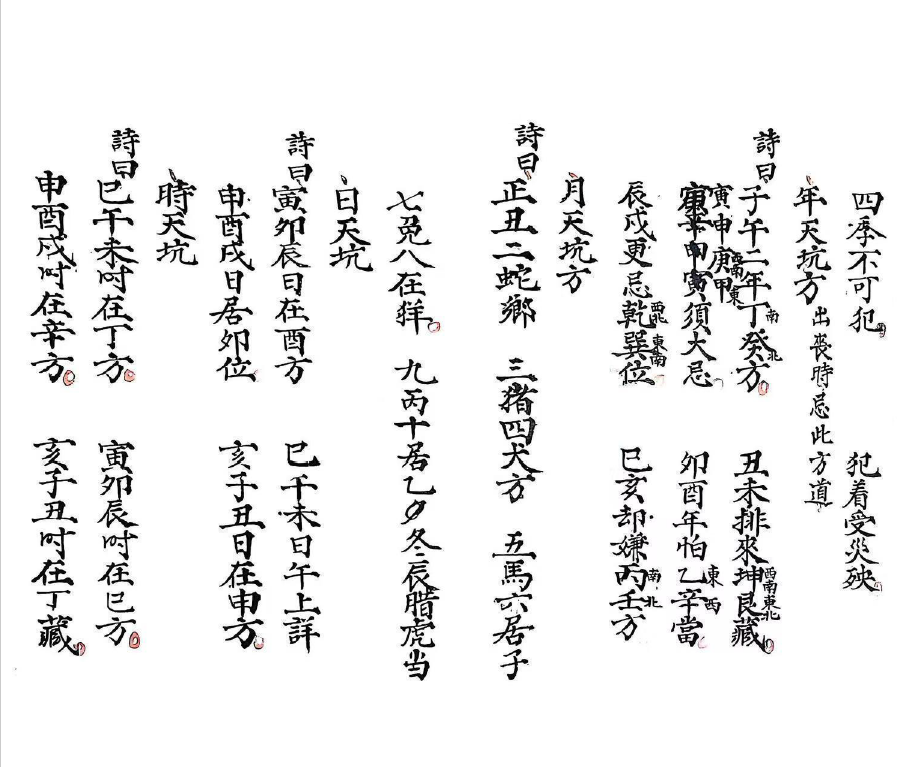 四季不可犯 犯着受災殃
年天坑方 出喪時忌此方道
詩曰子午二年丁南癸北方 丑未排來坤西南艮東北藏
寅申庚西南甲東
甲寅須大忌 卯酉年怕乙東辛西當
辰戌更忌乾西北巽東南位 巳亥却嫌丙南壬北方
月天坑方
詩曰正丑二蛇鄉 三猪四犬方 五馬六居子
七兔八在 九丙十居乙 冬辰腊虎当
日天坑
詩曰寅卯辰日在酉方 巳午未日午上詳
申酉戌日居卯位 亥子丑日在申方
時天坑
詩曰巳午未时在丁方 寅卯辰时在巳方
申酉戌时在辛方 亥子丑时在丁藏